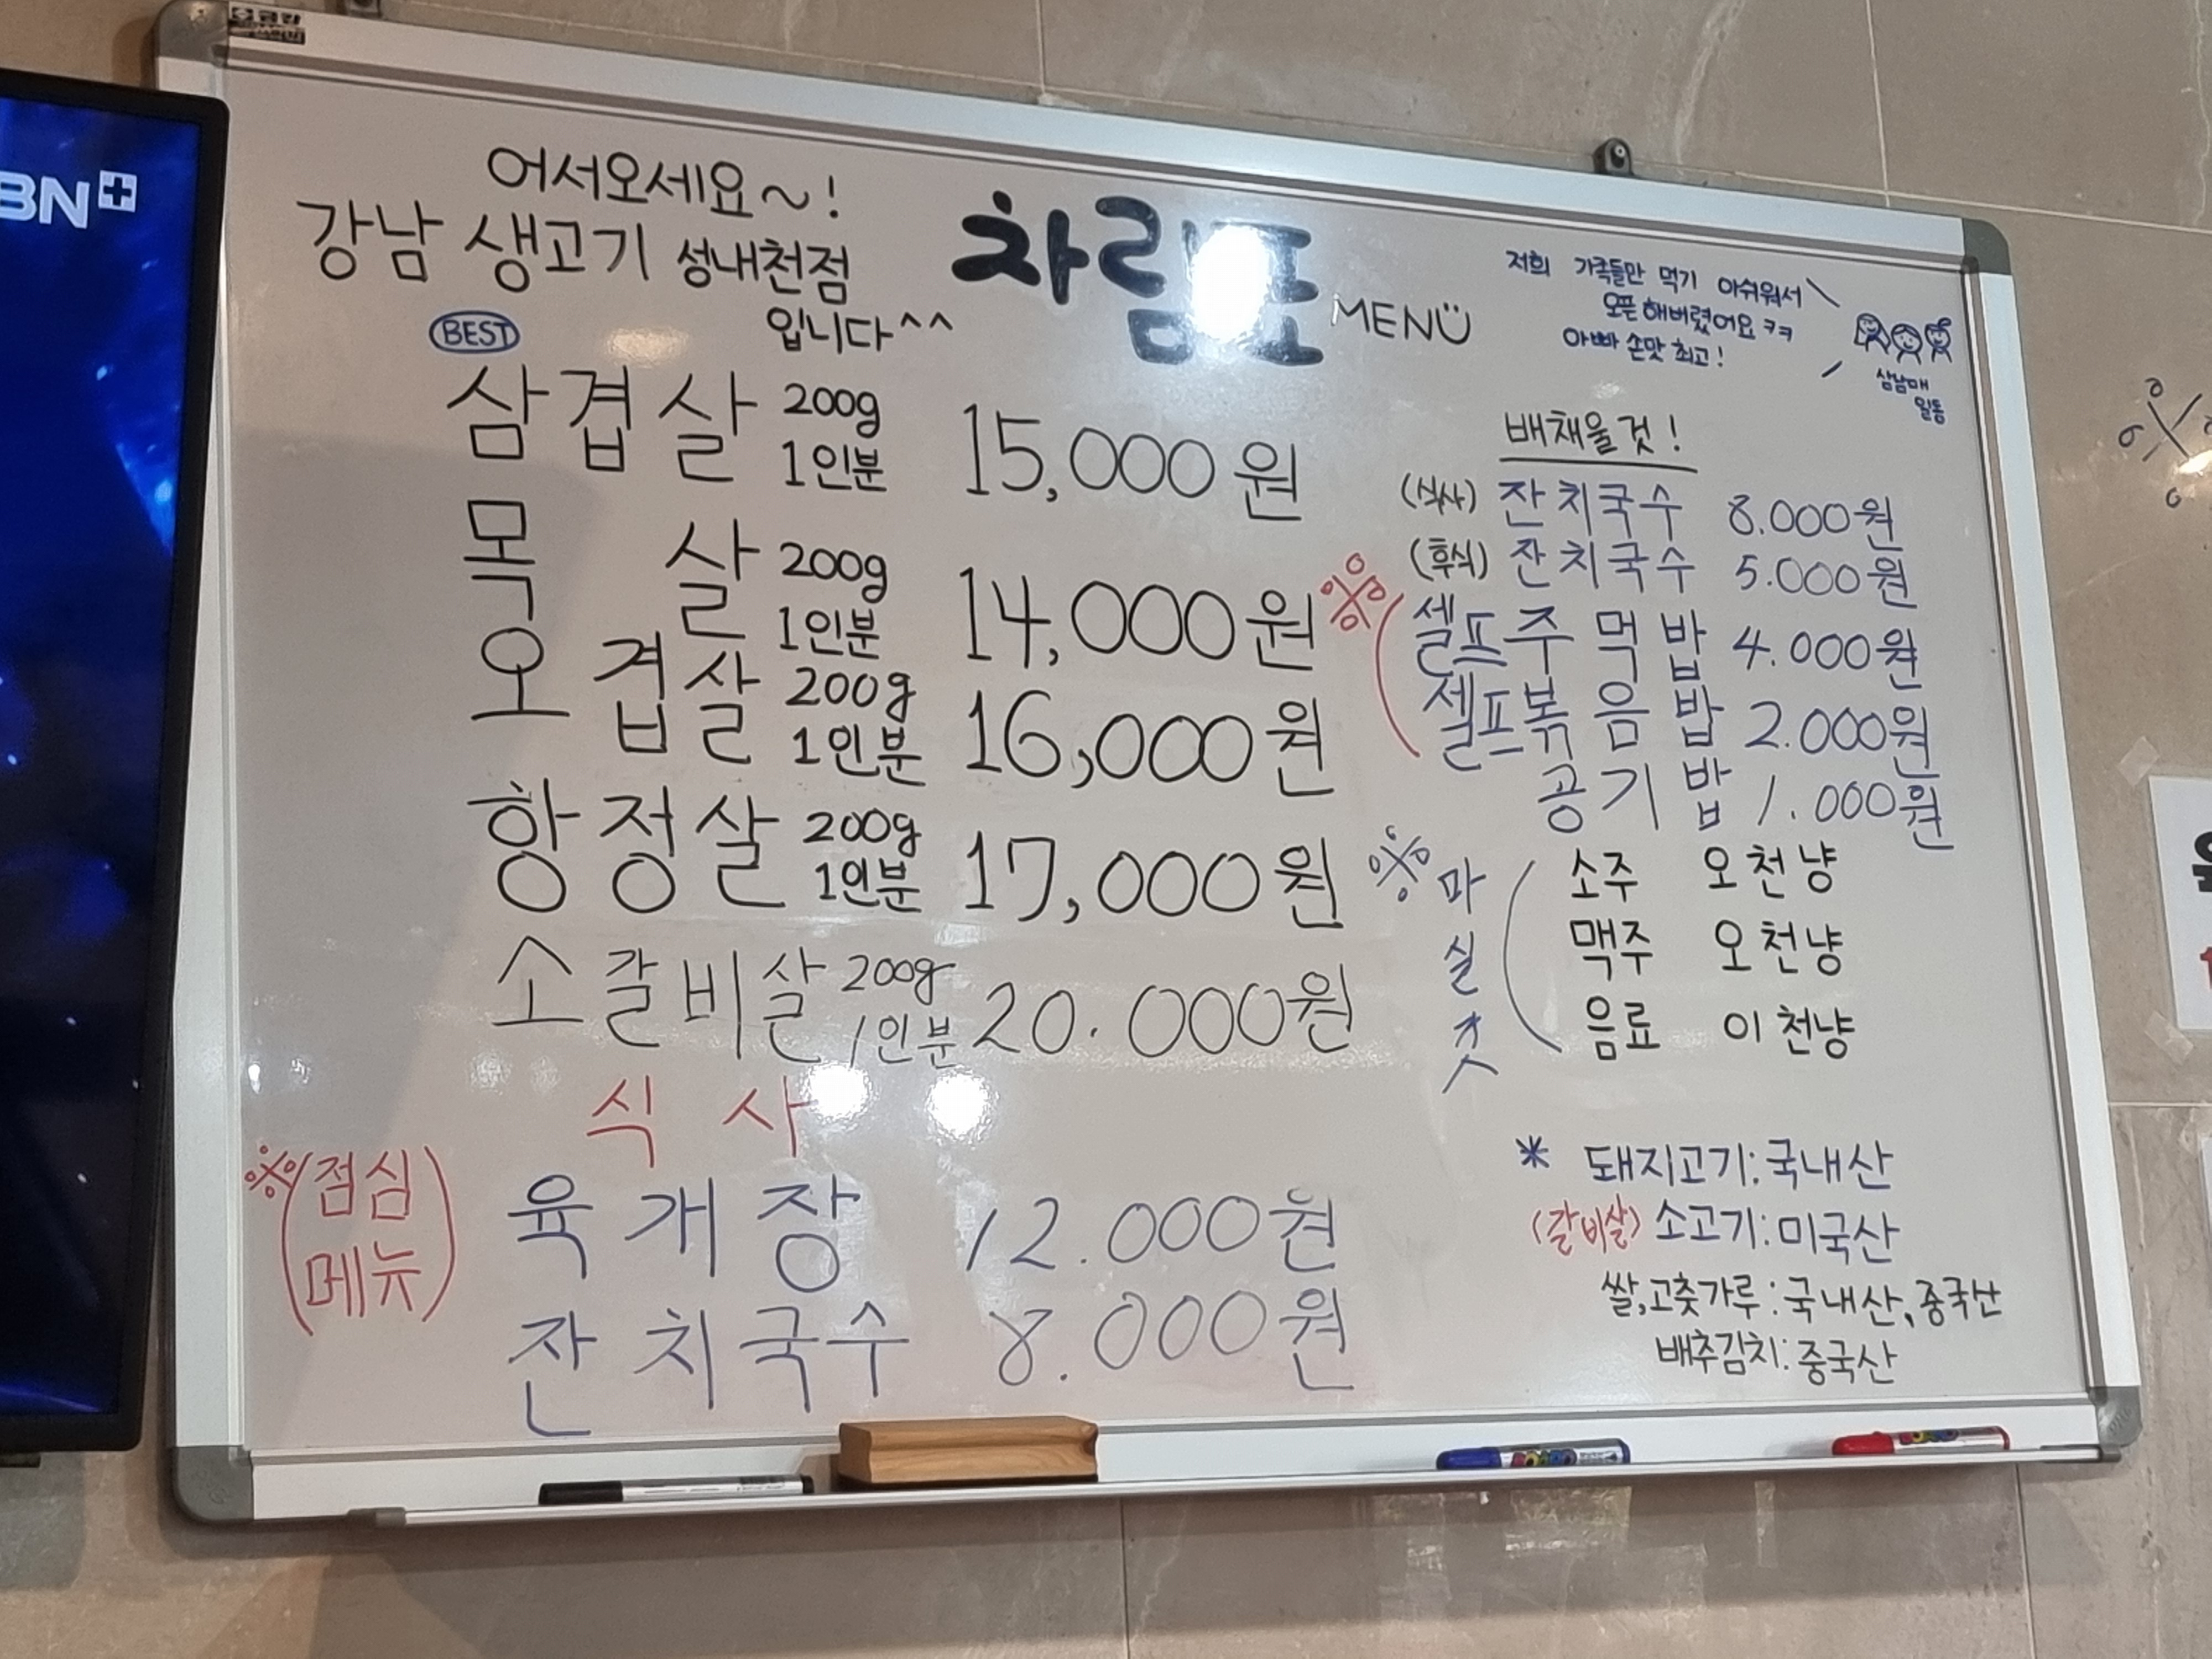 BN+
어서오세요~!
강남 생고기 성내천점
입니다^^
차림표
MENU
저희 가족들만 먹기 아쉬워서
오픈 해버렸어요 ㅋㅋ
아빠 손맛 최고!
삼남매
일동
BEST
삼겹살 200g 1인분 15,000원
목살 200g 1인분 14,000원
오겹살 200g 1인분 16,000원
항정살 200g 1인분 17,000원
소갈비살 200g 1인분 20.000원
식사
※(점심 메뉴)
육개장 12.000원
잔치국수 8.000원
배채울것!
(식사) 잔치국수 8.000원
(후식) 잔치국수 5.000원
※ 셀프주먹밥 4.000원
셀프볶음밥 2.000원
공기밥 1.000원
※ 마실것
소주 오천냥
맥주 오천냥
음료 이천냥
* 돼지고기:국내산
(갈비살) 소고기:미국산
쌀,고춧가루:국내산,중국산
배추김치:중국산